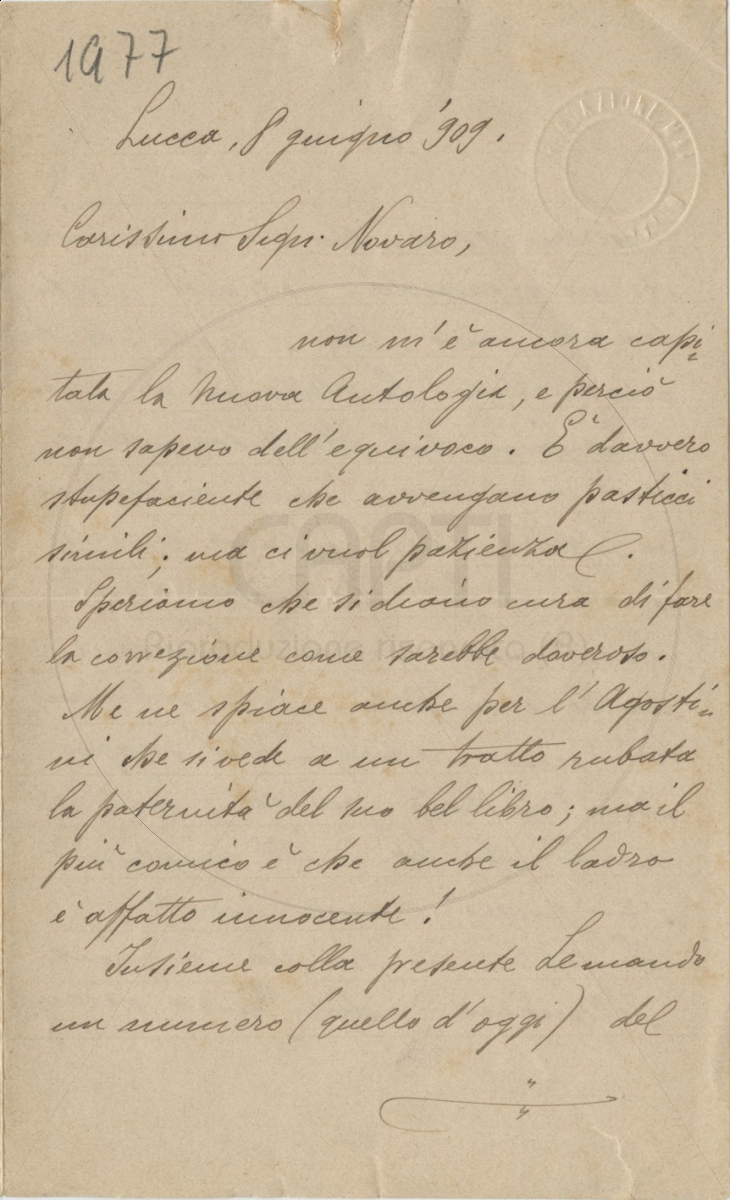 1977
Lucca, 8 giugno '909.
Carissimo Sign. Novaro,
non m'è ancora capi-
tata la Nuova Antologia, e perciò
non sapevo dell'equivoco. È davvero
stupefaciente che avvengano pasticci
simili; ma ci vuol pazienza.
Speriamo che si diano cura di fare
la correzione come sarebbe doveroso.
Me ne spiace anche per l'Agosti-
ni che si vede a un tratto rubata
la paternità del suo bel libro; ma il
più comico è che anche il ladro
è affatto innocente!
Insieme colla presente Le mando
un numero (quello d'oggi) del